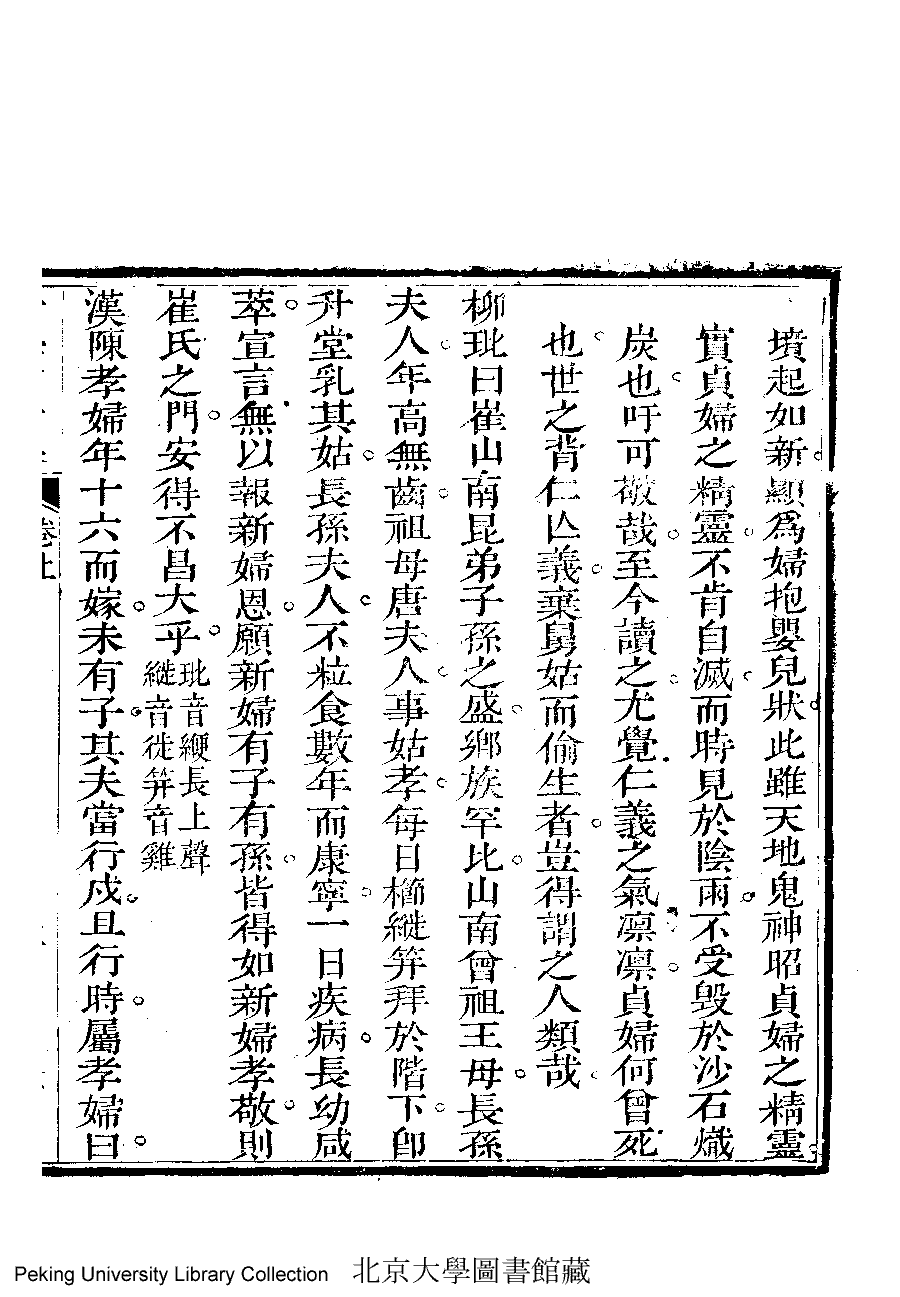 墳起如新顯爲婦抱嬰兒狀此雖天地鬼神昭貞婦之精靈
實貞婦之精靈不肯自滅而時見於陰雨不受毀於沙石熾
炭也吁可敬哉至今讀之尤覺仁義之氣凛凛貞婦何曾死
也世之背仁亾義棄舅姑而偷生者豈得謂之人類哉
柳玭曰崔山南昆弟子孫之盛鄉族罕比山南曾祖王母長孫
夫人年高無齒祖母唐夫人事姑孝每日櫛縰笄拜於階下卽
升堂乳其姑長孫夫人不粒食數年而康寧一日疾病長幼咸
萃宣言無以報新婦恩願新婦有子有孫皆得如新婦孝敬則
崔氏之門安得不昌大乎
玭音緶長上聲
縰音徙笄音雞
漢陳孝婦年十六而嫁未有子其夫當行戍且行時屬孝婦曰
卷上
Peking University Library Collection 北京大學圖書館藏